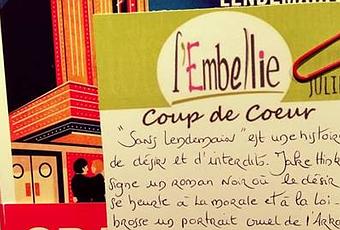 LENDEMAIN
l'Embellie
JULIE
Coup de Coeur
"Sans lendemain" est une histoire
de désirs et d'interdits. Jake Hink
signe un roman noir où le désir
se heurte à la morale et à la loi.
brosse un portrait cruel de l'Arka